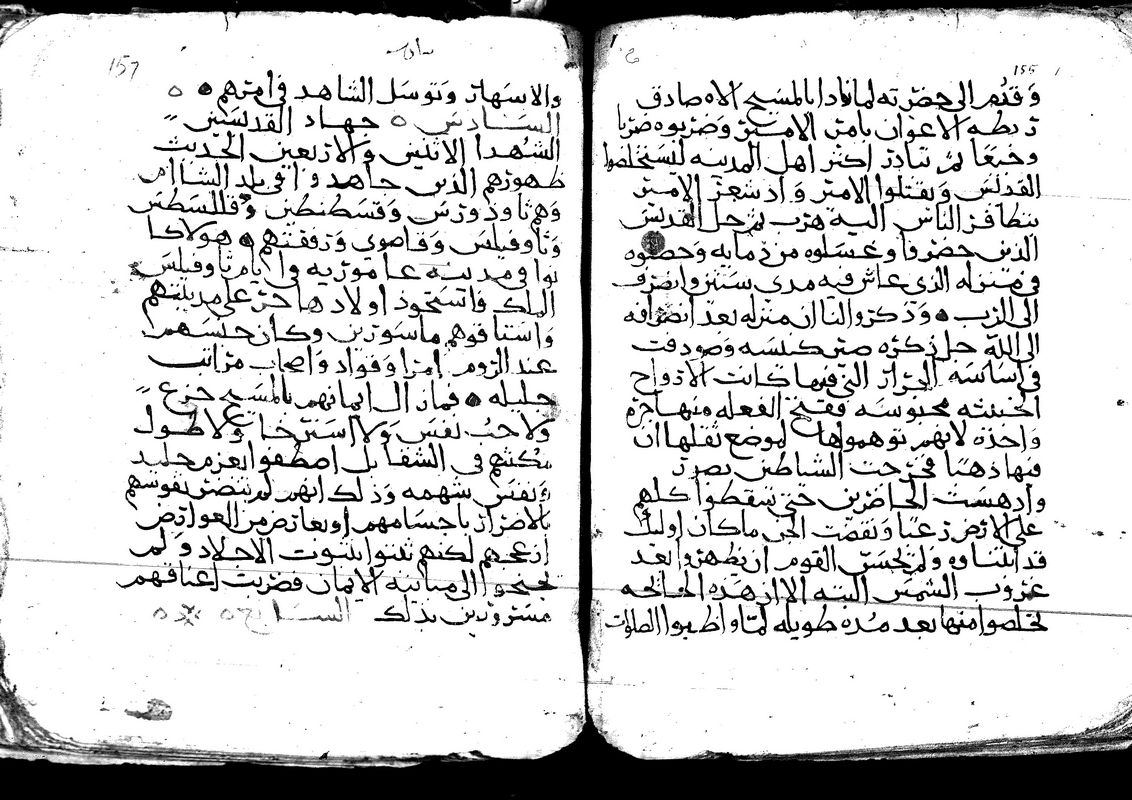 155
وقدم الى حضرته لما نادا بالمسيح الاه صادق
ربطه الاعوان بامر الامير وضربوه ضربا
وجيعا ثم تبادر اكثر اهل المدينه ليستخلصوا
القديس ويقتلوا الامير واذ شعر الامير
بتطافر الناس اليه هرب ثم حل القديس
الذين حضروا وغسلوه من دمايه وحصلوه
في منزله الذي عاش فيه مدى سنتين وانصرف
الى الرب وذكروا لنا ان منزله بعد انصرافه
الى الله جل ذكره صير كنيسه وصودفت
في اساسه الجرار التي فيها كانت الارواح
الخبيثه محبوسه ففتح الفعله منها جره
واحده لانهم توهموها لموضع ثقلها ان
فيها ذهبا فخرجت الشياطين بصرر
وادهشت الحاضرين حتى سقطوا كلهم
على الارض رعبا ونقصت الجن ماكان اوليك
قد ابتناوه ولم يجسر القوم ان يظهروا بعد
غروب الشمس البته الا ان هذه الجايحه
تخلصوا منها بعد مده طويله لما واظبوا الصلوات
157
والاسهار وتوسل الشاهد في امرهم
السادس جهاد القديسين
الشهدا الاثنين والاربعين الحديث
ظهورهم الذين جاهدوا في بلد الشاام
وهم ثاوذورس وقسطنطين وقاللسطس
وثاوفيلس وقاصوي ورفقتهم هولا كا
نوا في مدينه عاموريه وايام ثاوفيلس
الملك واستحوذ اولاد هاجر على مدينتهم
واستاقوهم ماسورين وكان جنسهم
عند الروم امرا وقواد واصحاب مراتب
جليله فما زال ايمانهم بالمسيح جزع
ولا حب نفس ولا استرخا ولا طول
مكثهم في الشقا بل اصطفوا بعزم جليد
ونفس شهمه وذلك انهم لم تنصر نفوسهم
بالاضرار باجسامهم او بعارض من العوارض
ازعجهم لكنهم ثبتوا بثبوت الاجلاد ولم
يجنحوا الى مباينه الايمان فضربت اعناقهم
مسرورين بذلك السابع